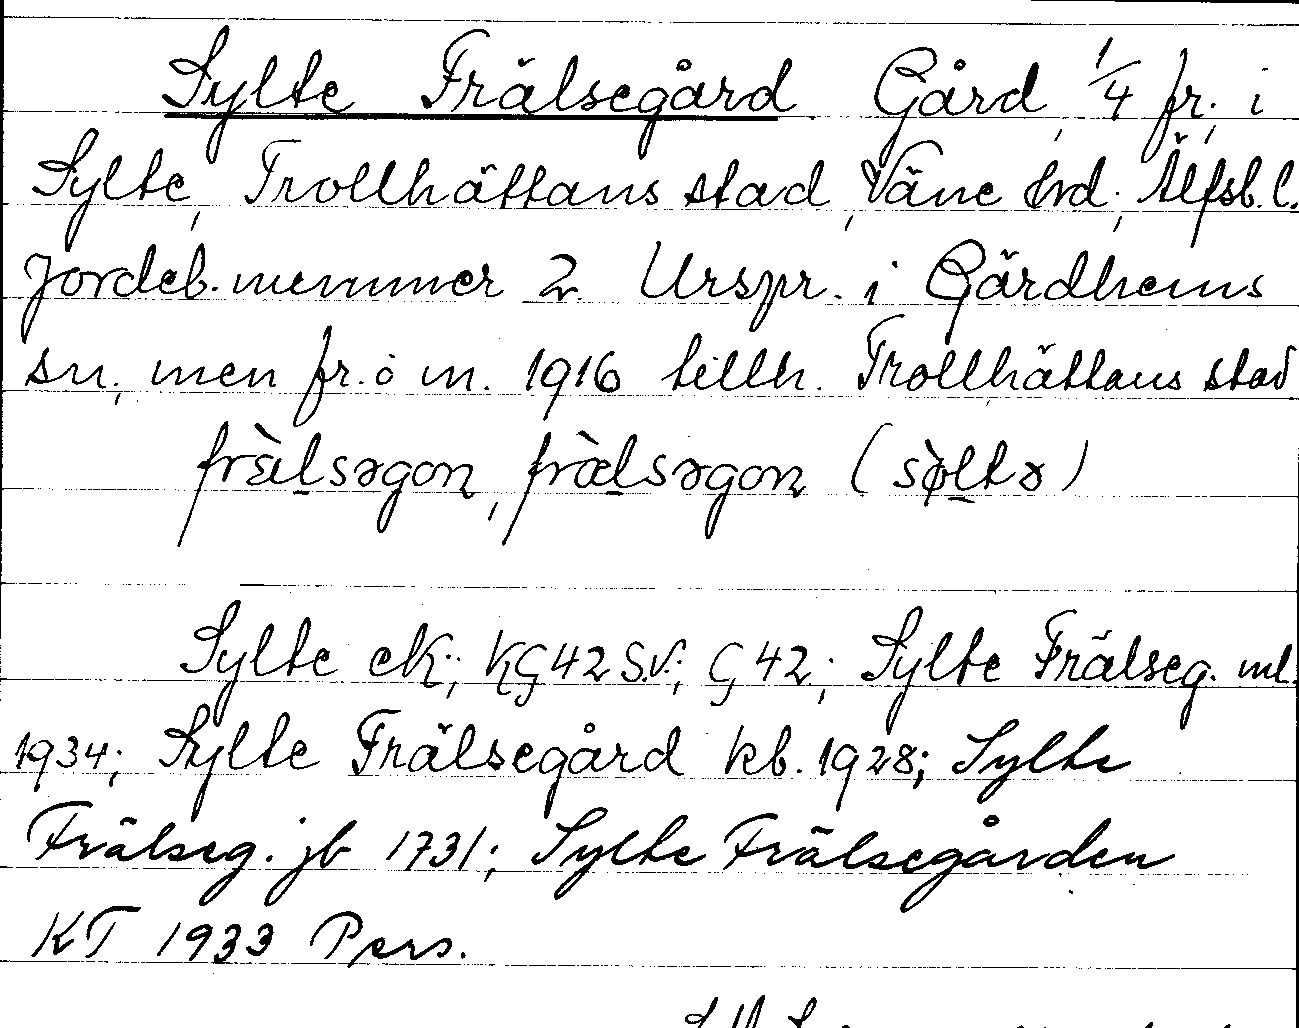 Sylte Frälsegård Gård, 1/4 fr. i
Sylte, Trollhättans stad, Väne hrd, Älfsb. l.
Jordeb. nummer 2. Urspr. i Gärdhems
sn, men fr. o m. 1916 tillh. Trollhättans stad
frὲlsəgoɳ, fræ̀lsəgoɳ (sø̀ltə)
Sylte ek; KG 42 S.V.; G 42; Sylte Frälseg. ml.
1934; Sylte Frälsegård kb. 1928; Sylte
Frälseg. jb 1731; Sylte Frälsegården
KT 1933 Pers.